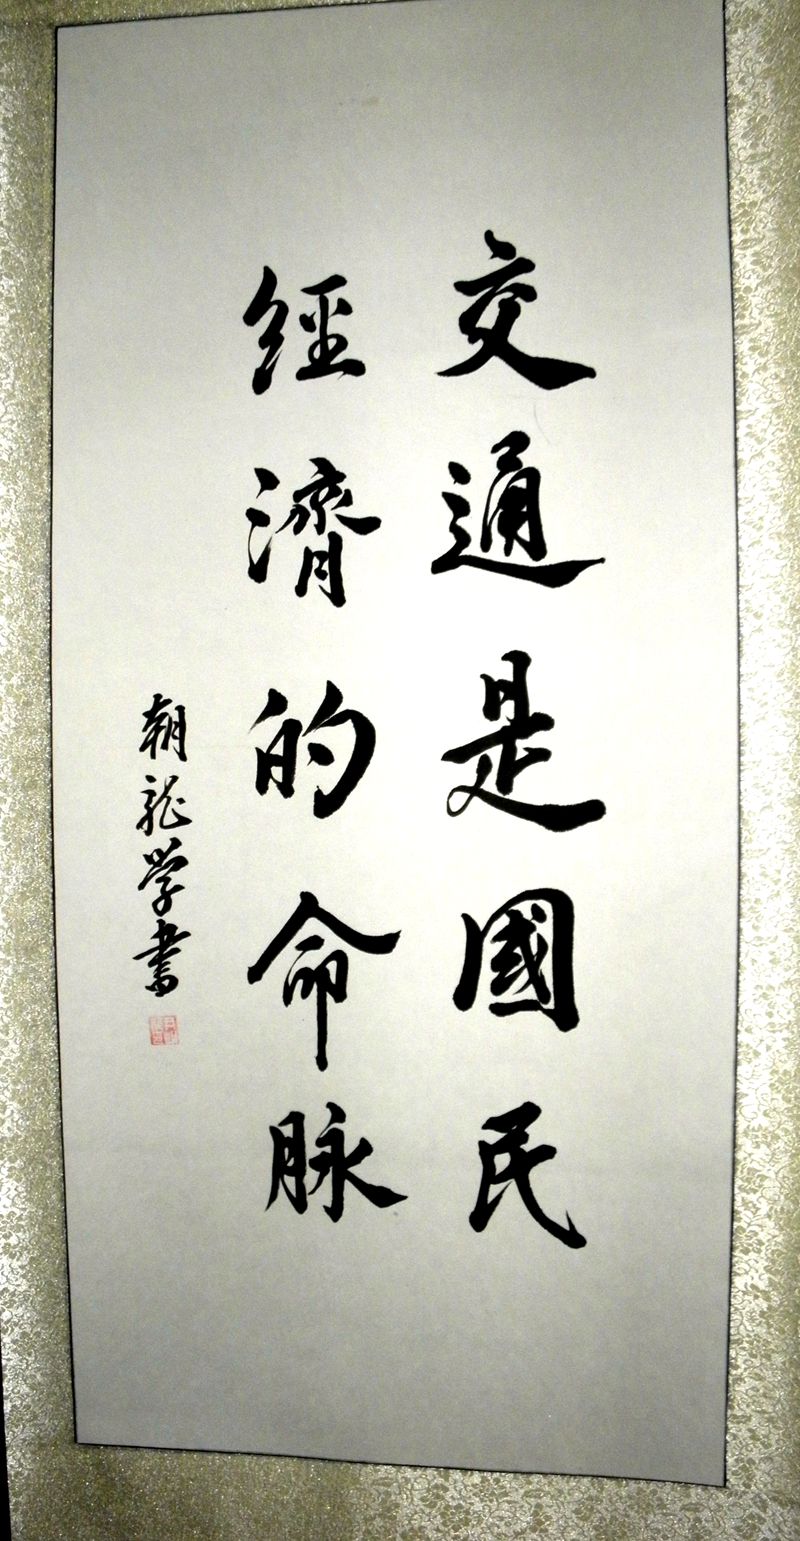 交通是國民
經濟的命脉
朝龍学書